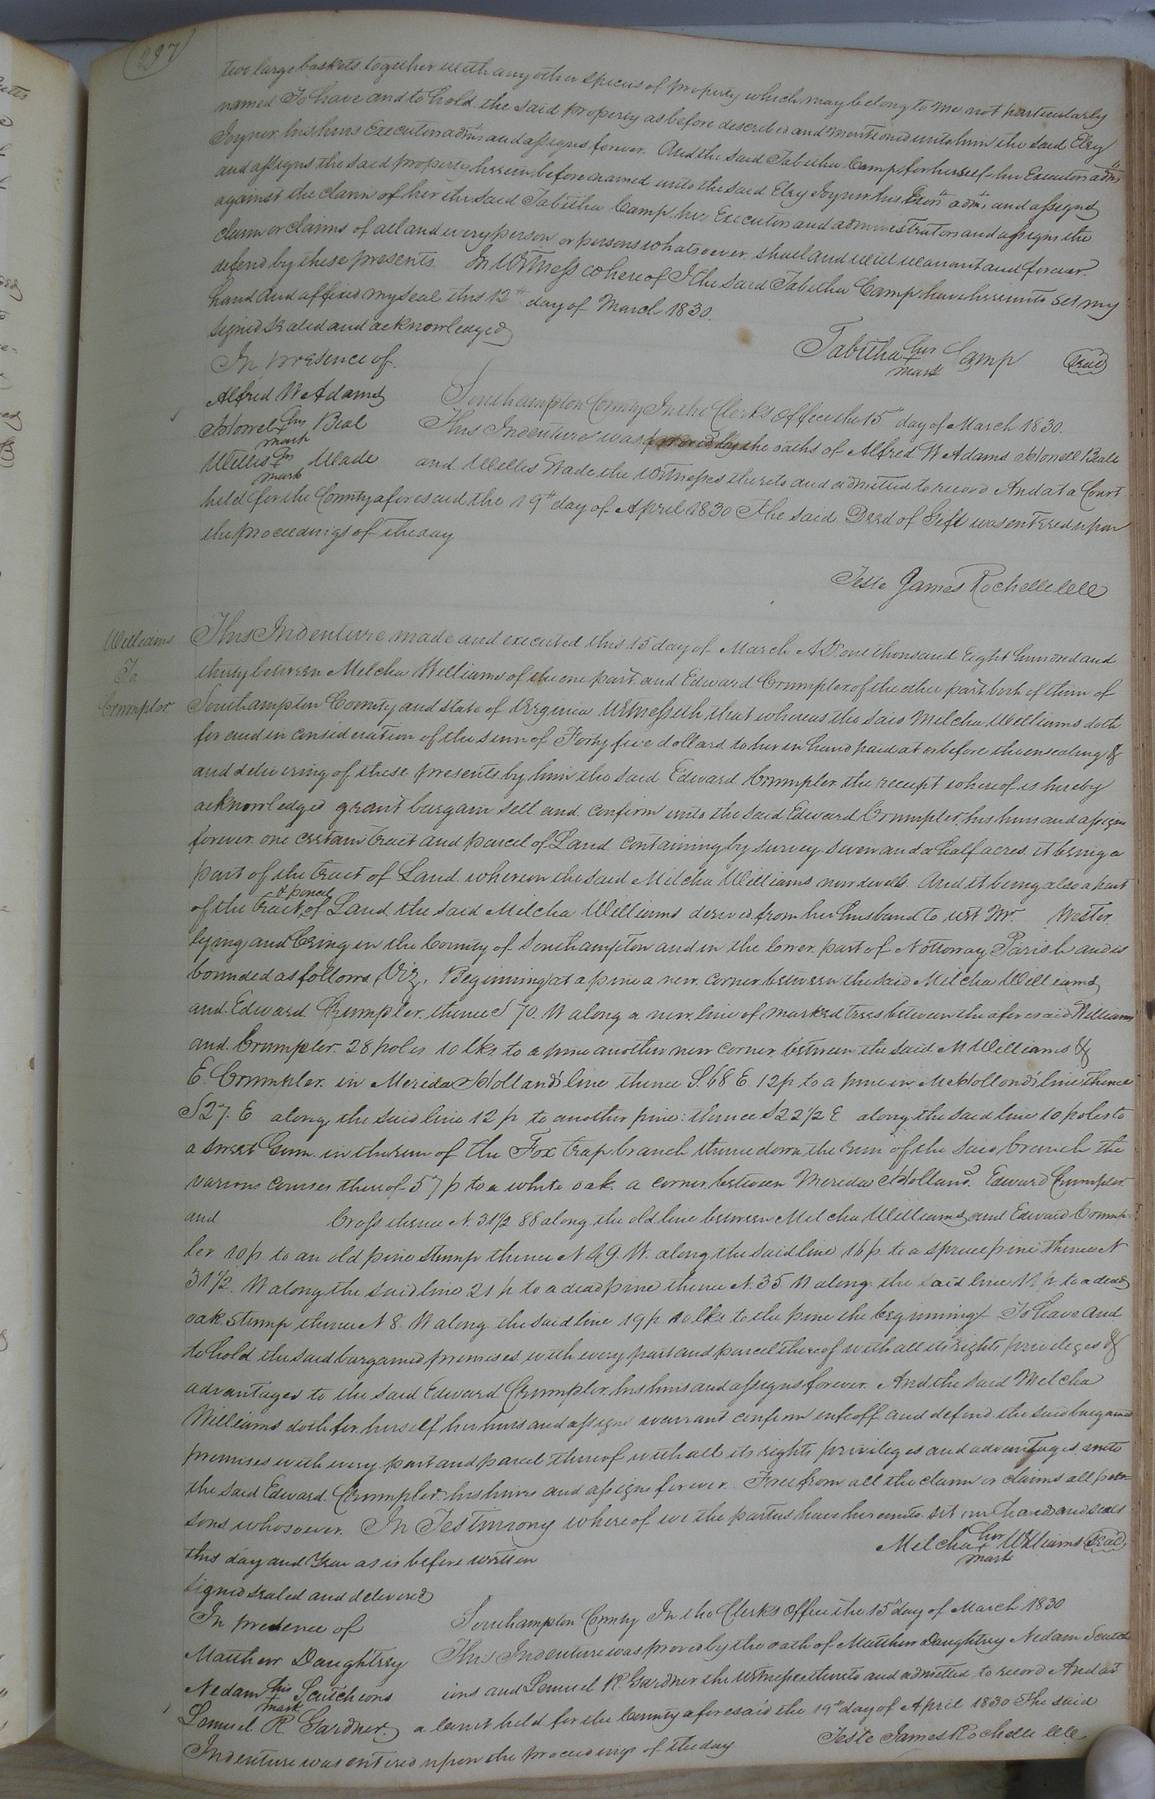 237
two large baskets together with any other species of property which may belong to me not particularly
named To have and to hold the said property as before described and mentioned unto him the said Elvy
Joyner his heirs Executors adms and assigns forever. And the said Tabitha Camp for herself her Executors adms
and assigns the said property herein before named unto the said Elvy Joyner his Exors adms and assigns
against the claim of her the said Tabitha Camp her Executors and administrators and assigns the
claim or claims of all and every person or persons whatsoever shall and will warrant and forever
defend by these presents. In Witness whereof I the said Tabitha Camp have hereunto set my
hand and affixed my seal this 12th day of March 1830.
signed sealed and acknowledged
In presence of
Tabitha her mark Camp Seal
Alfred W Adams
Howel his mark Beal
Willis his mark Wade
Southampton County In the Clerks Office the 15 day of March 1830.
This Indenture was proved by the oaths of Alfred W Adams Howell Beale
and Willis Wade the Witnesses thereto and admitted to record And at a Court
held for the County aforesaid the 19th day of April 1830 The said Deed of Gift was entered upon
the proceedings of the day
Teste James Rochelle CCC
Williams
To
Crumpler
This Indenture made and executed this 15 day of March AD one thousand Eight hundred and
thirty between Melcha Williams of the one part and Edward Crumpler of the other part both of them of
Southampton County and state of Virginia Witnesseth that whereas the said Melcha Williams doth
for and in consideration of the sum of Forty five dollars to her in hand paid at or before the ensealing &
and delivering of these presents by him the said Edward Crumpler the receipt whereof is hereby
acknowledged grant bargain sell and confirm unto the said Edward Crumpler his heirs and assigns
forever one certain tract and parcel of Land containing by survey seven and a half acres it being a
part of the tract of Land whereon the said Melcha Williams now dwells. And it being also a part
of the tract & parcel of Land the said Melcha Williams derived from her husband to wit Mr. Wester
lying and being in the County of Southampton and in the lower part of Nottoway Parish and is
bounded as follows (Viz, Beginning at a pine a new corner between the said Melcha Williams
and Edward Crumpler thence S 70. W along a new line of marked trees between the aforesaid Williams
and Crumpler 28 poles 10 lks to a pine another new corner between the said M Williams &
E. Crumpler in Merida Holland's line thence S. 68 E. 12p to a pine in M Holland's line thence
S 27. E along the said line 12 p to another pine: thence S 22 1/2 E along the said line 10 poles to
a sweet Gum in the run of the Fox trap branch thence down the run of the said branch the
various courses thereof 57 p to a white oak a corner between Merida Holland Edward Crumpler
and Cross thence N. 31 1/2 88 along the old line between Melcha Williams and Edward Crump-
ler 10p to an old pine stump thence N 49. W. along the said line 16 p to a spruce pine thence N
31 1/2. W along the said line 21 p to a dead pine thence N. 35 W along the said line 12 p to a dead
oak stump thence N 8. W along the said line 19 p 10 lks to the pine the beginning. To have and
to hold the said bargained premises with every part and parcel thereof with all its rights privileges &
advantages to the said Edward Crumpler his heirs and assigns forever. And the said Melcha
Williams doth for herself her heirs and assigns warrant confirm enfeoff and defend the said bargained
premises with every part and parcel thereof with all its rights privileges and advantages unto
the said Edward Crumpler his heirs and assigns forever. Free from all the claim or claims all per-
sons whosoever. In Testimony whereof we the parties have hereunto set our hand and seals
this day and Year as is before written
Melcha her mark Williams Seal
signed sealed and delivered
In presence of
Matthew Daughtrey
Nedam his mark Scutchions
Lemuel R Gardner
Southampton County In the Clerks Office the 15 day of March 1830
This Indenture was proved by the oath of Matthew Daughtrey Nedam Scutch
ions and Lemuel R Gardner the Witnesses thereto and admitted to record And at
a Court held for the County aforesaid the 19th day of April 1830 The said
Indenture was entered upon the proceedings of the day
Teste James Rochelle CCC